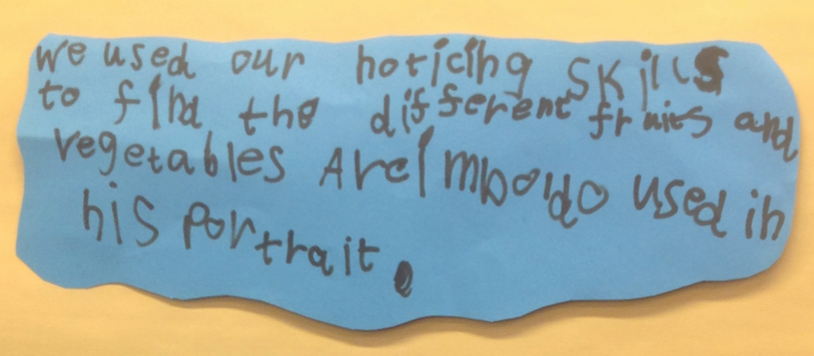 we used our noticing skills
to find the different fruits and
vegetables Arcimboldo used in
his portrait.